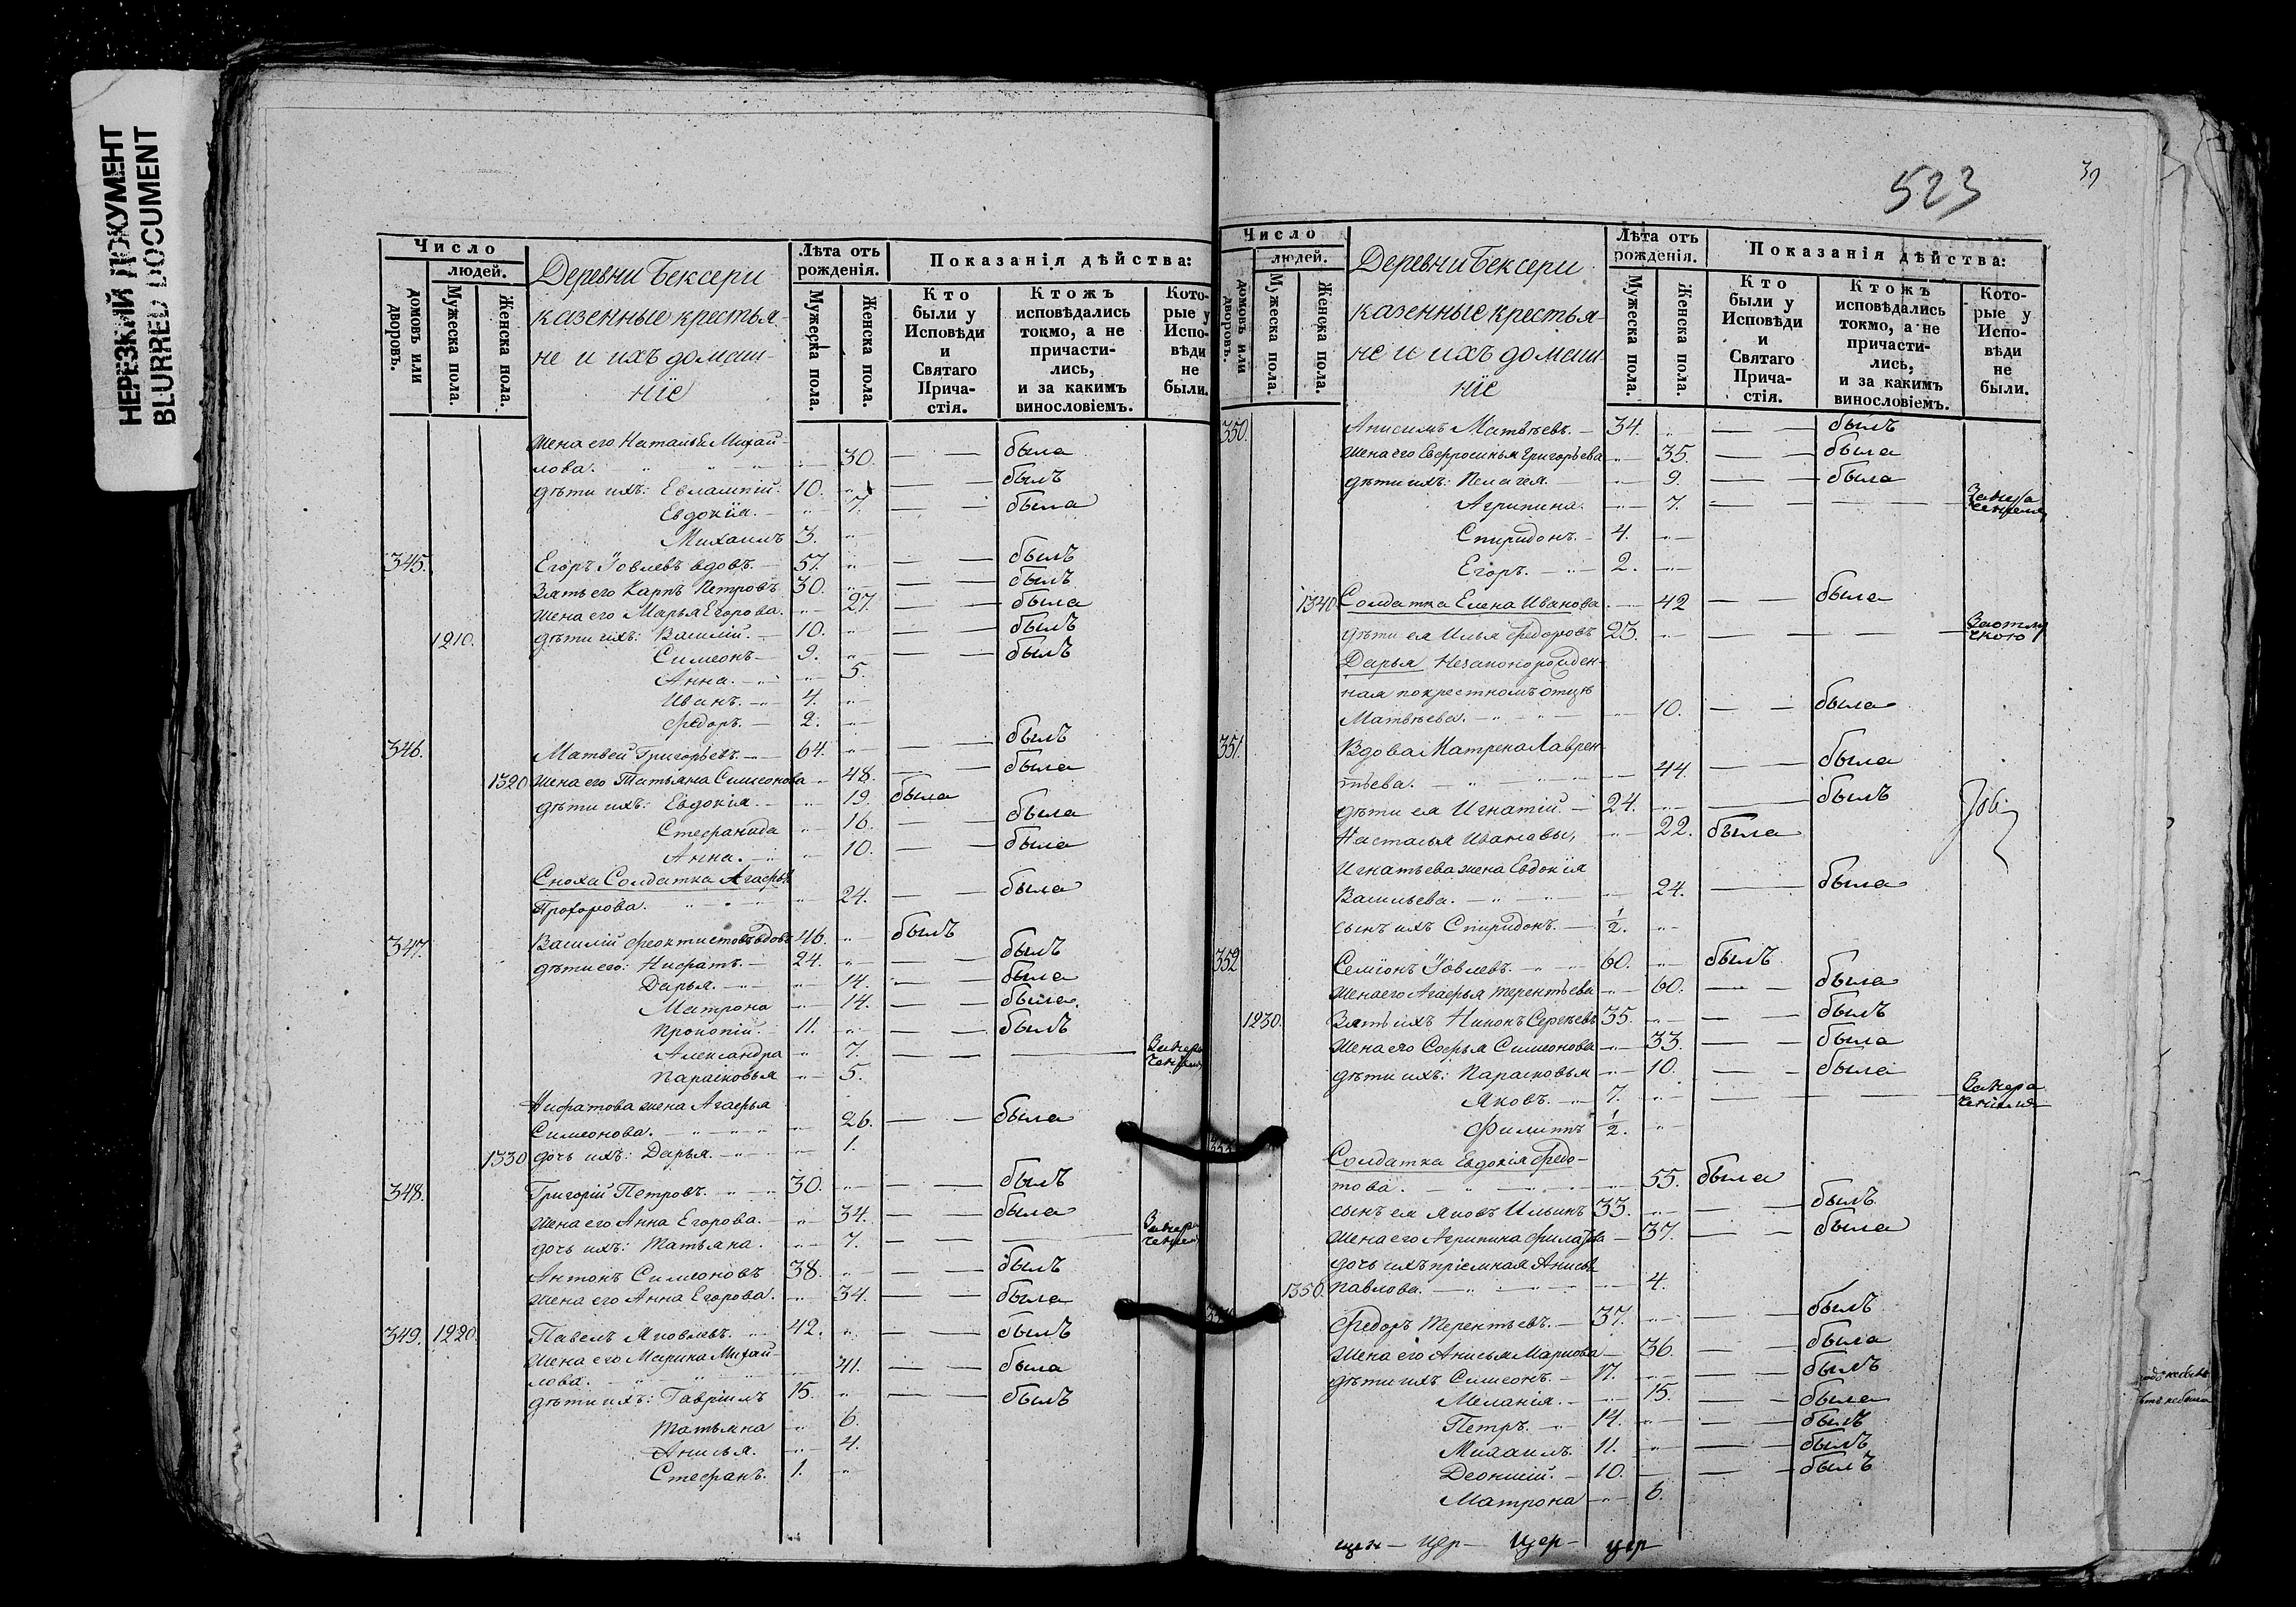 НЕРЕЗКИЙ ДОКУМЕНТ
BLURRED DOCUMENT
Число
людей.
домовъ или дворовъ.
Мужеска пола.
Женска пола.
Деревни Бексери
казенные крестья-
не и ихъ домаш-
нїе
Лѣта отъ рожденія.
Мужеска пола.
Женска пола.
Показанія дѣйства:
Кто были у Исповѣди и Святаго Прича-стія.
Ктожъ исповѣдались токмо, а не причасти-лись, и за какимъ винословіемъ.
Кото-рые у Испо-вѣди не были.
Жена его Наталья Михай-
лова. 30. была
дѣти ихъ: Евлампій. 10. былъ
Евдокія. 7. была
Михаилъ 3.
345. Егоръ Іовлевъ вдовъ. 57. былъ
Зять его Карпъ Петровъ 30. былъ
Жена его Марья Егорова. 27. была
1210. дѣти ихъ: Василій. 10. былъ
Симеонъ 9. былъ
Анна. 5.
Иванъ. 4.
Федоръ. 2.
346. Матвей Григорьевъ. 64. былъ
1320 Жена его Татьяна Симеонова 48. была
дѣти ихъ: Евдокія. 19. была
Стефанида 16. была
Анна. 10. была
Сноха Солдатка Агафья
Прохорова. 24. была
347. Василій Феоктистовъ вдовъ 46. былъ
дѣти его: Нифатъ. 24. былъ
Дарья. 14. была
Матрона 14. была.
Прокопій. 11. былъ
Александра 7.
Парасковья 5.
Нифатова жена Агафья
Симеонова. 26. была
1330 дочь ихъ: Дарья. 1.
348. Григорій Петровъ. 30. былъ
Жена его Анна Егорова. 34. была
дочь ихъ: Татьяна. 7.
Антонъ Симеоновъ 38. былъ
Жена его Анна Егорова. 34. была
349. 1220. Павелъ Яковлевъ. 42. былъ
Жена его Марина Михай-
лова. 41. была
дѣти ихъ: Гавріилъ 15. былъ
Татьяна 6.
Анисья. 4.
Стефанъ. 1.
523
39
Число
людей.
домовъ или дворовъ.
Мужеска пола.
Женска пола.
Деревни Бексери
казенные крестья-
не и ихъ домаш-
нїе
Лѣта отъ рожденія.
Мужеска пола.
Женска пола.
Показанія дѣйства:
Кто были у Исповѣди и Святаго Прича-стія.
Ктожъ исповѣдались токмо, а не причасти-лись, и за какимъ винословіемъ.
Кото-рые у Испо-вѣди не были.
350. Анисимъ Матвѣевъ. 34. былъ
Жена его Евфросинья Григорьева 35. была
дѣти ихъ: Пелагея. 9. была
Агрипина. 7.
Спиридонъ. 4.
Егоръ. 2.
1340 Солдатка Елена Иванова 42 была
дѣти ея Илья Федоровъ 23.
Дарья Незаконорожден-
ная по крестномъ отцѣ
Матвѣева. 10. была
351. Вдова Матрена Лаврен-
тьева. 44. была
дѣти ея Игнатій. 24. былъ
Настасья Ивановы, 22. была
Игнатьева жена Евдокія
Васильева. 24. была
сынъ ихъ Спиридонъ. 1/2.
352 Семіонъ Іовлевъ. 60. былъ
Жена его Агафья Терентьева 60. была
1230. Зять ихъ Никонъ Сергѣевъ 35. былъ
Жена его Софья Симеонова 33. была
дѣти ихъ: Парасковья 10. была
Яковъ. 7.
Филиппъ 1/2.
Солдатка Евдокія Федо-
това. 55. была
сынъ ея Яковъ Ильинъ 33. былъ
Жена его Агрипина 37. была
дочь ихъ пріемная Анисья
1350. Павлова. 4.
Федоръ Терентьевъ. 37. былъ
Жена его Анисья Маркова 36. была
дѣти ихъ Симеонъ. 17. былъ
Меланія. 15. была
Петръ. 14. былъ
Михаилъ 11. былъ
Деонисій. 10. былъ
Матрона 6.